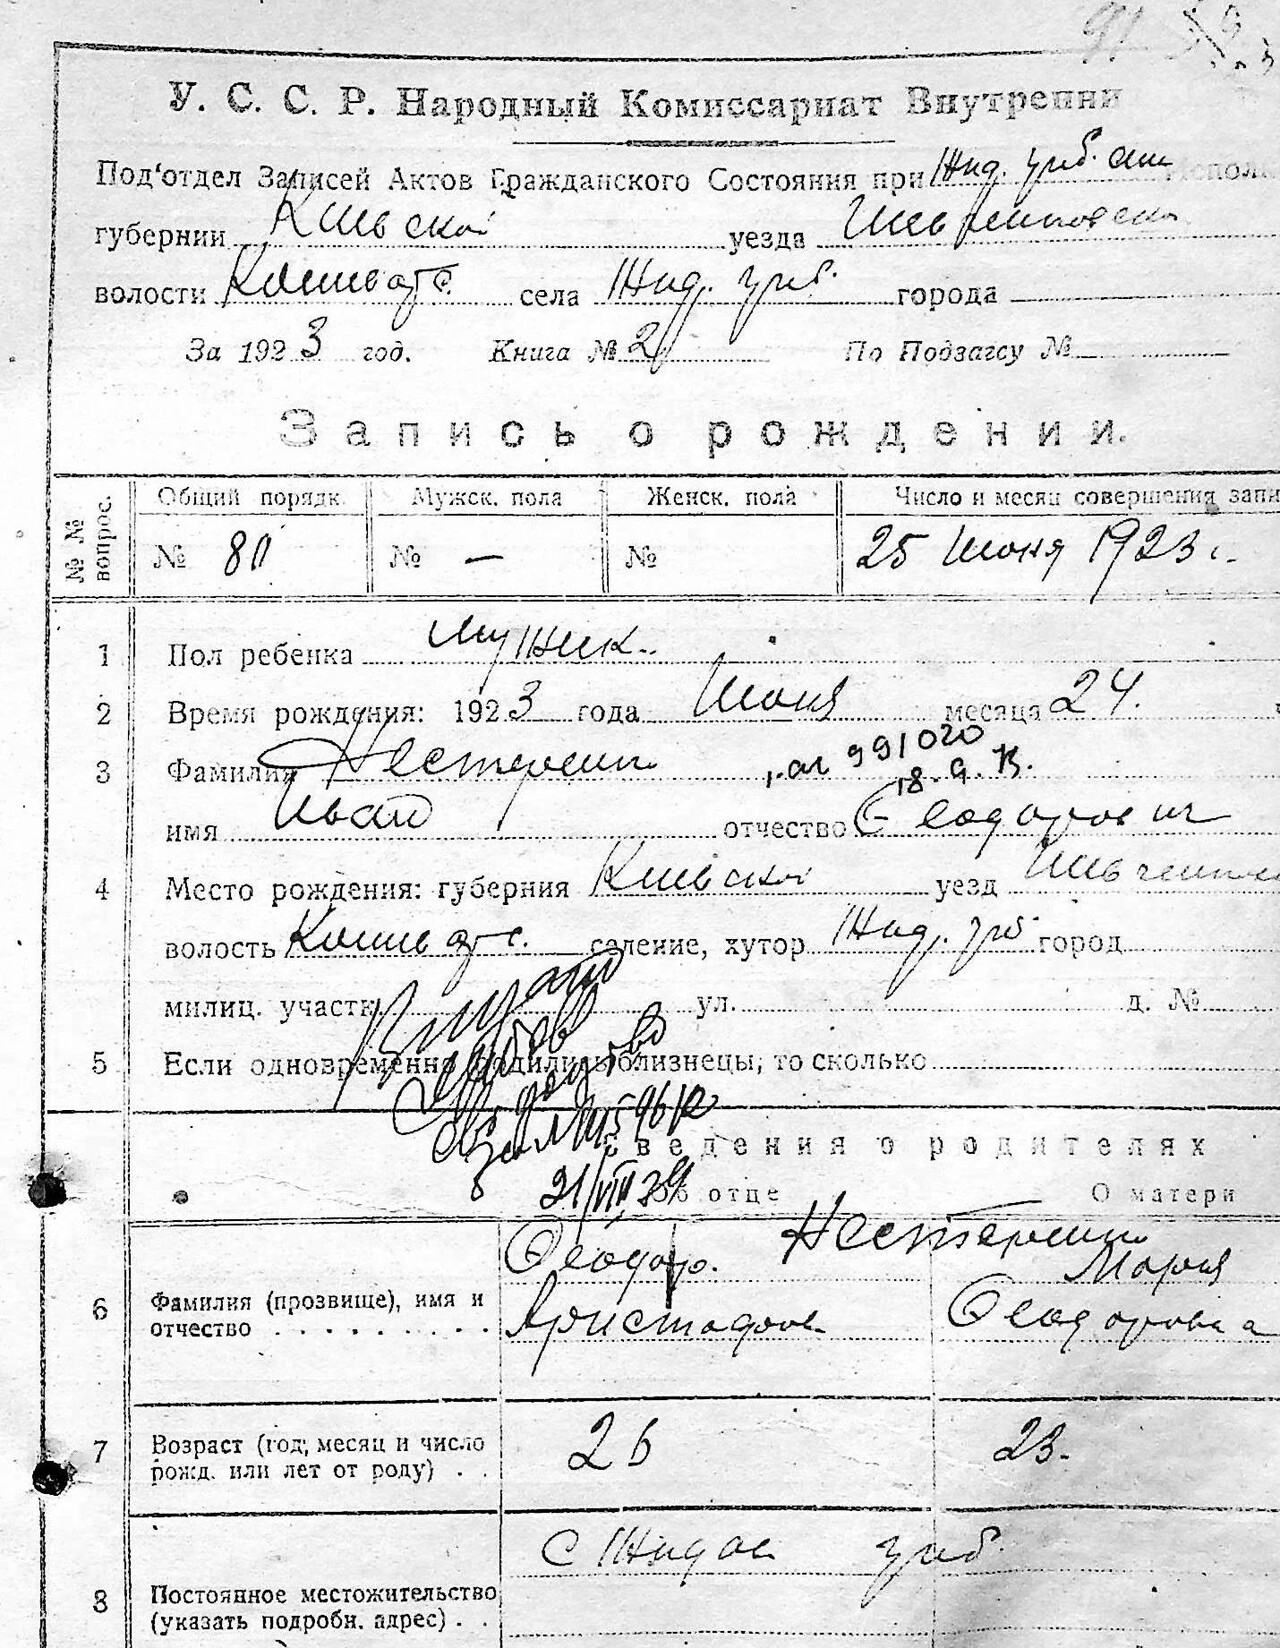 91
У. С. С. Р. Народный Комиссариат Внутренни
Под'отдел Записей Актов Гражданского Состояния при Жид. греб. Исполк
губернии Киевской уезда Шевченковско
волости Кошев села Жид. греб. города
За 1923 год. Книга № 2 По Подзагсу №
Запись о рождении.
№№ вопрос. Общий порядк. Мужск. пола Женск. пола Число и месяц совершения запи
№ 80 № — № 25 Июня 1923 г.
1 Пол ребенка Мужск.
2 Время рождения: 1923 года Июня месяца 24.
991020
3 Фамилия Нестеренко
18.9.
имя Иван отчество Феодорович
4 Место рождения: губерния Киевской уезд Шевченков
волость Кошев селение, хутор Жид. греб город
милиц. участк. ул. д. №
5 Если одновременно родились близнецы, то сколько
Сведения о родителях
21/VIII 34 Об отце О матери
Феодор. Нестеренко
Мария
6 Фамилия (прозвище), имя и
отчество Аристархов Феодоровна
7 Возраст (год, месяц и число 26 23.
рожд. или лет от роду)
с Жидов греб.
8 Постоянное местожительство
(указать подробн. адрес)